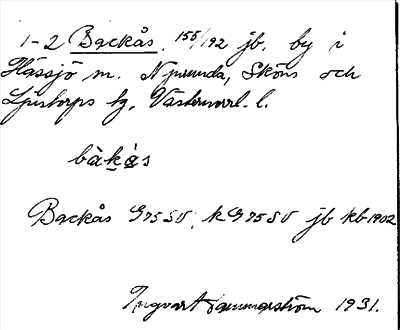 1-2 Backås. 155/192 jb. by i
Hässjö sn. Njurunda, Sköns och
Ljustorps tg, Västernorrl. l.
bàkås
Backås G75SV, k G75SV jb kb 1902
Ingvart Hammarström 1931.